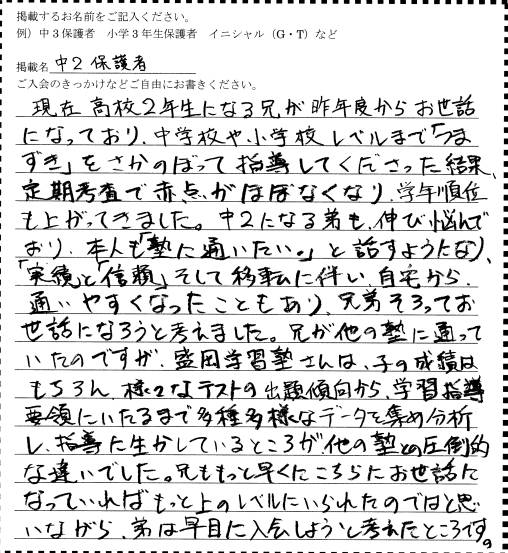 掲載するお名前をご記入ください。
例）中３保護者　小学３年生保護者　イニシャル（G・T）など
掲載名 中２保護者
ご入会のきっかけなどご自由にお書きください。
現在 高校２年生になる兄が昨年度からお世話
になっており、中学校や小学校レベルまで「つま
ずき」をさかのぼって指導してくださった結果、
定期考査で赤点がほぼなくなり、学年順位
も上がってきました。中２になる弟も、伸び悩んで
おり、本人も「塾に通いたい。」と話すようになり、
「実績」と「信頼」そして移転に伴い、自宅から
通いやすくなったこともあり、兄弟そろってお
世話になろうと考えました。兄が他の塾に通って
いたのですが、盛岡学習塾さんは、子の成績は
もちろん、様々なテストの出題傾向から、学習指導
要領にいたるまで多種多様なデータを集め分析
し、指導に生かしているところが他の塾との圧倒的
な違いでした。兄ももっと早くにこちらにお世話に
なっていればもっと上のレベルにいられたのではと思
いながら、弟は早目に入会しようと考えたところです。